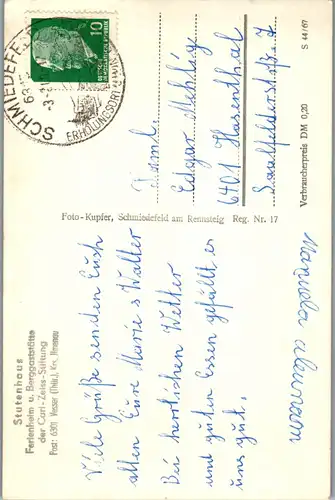 Stutenhaus
Ferienheim u. Berggaststätte
der Carl-Zeiss-Stiftung
Post: 6301 Vesser (Thür.), Krs. Ilmenau
Viele Grüße senden Euch
allen Eure Marie u Walter
Bei herrlichen Wetter
und guten Essen gefällt es
uns gut.
Foto-Kupfer, Schmiedefeld am Rennsteig Reg. Nr. 17
SCHMIEDEFE
ERHOLUNGSORT
10
DEUTSCHE
DEMOKRATISCHE REPUBLIK
Faml.
Edgar
6401 Hasenthal
Saalfelderstr. 7
Verbraucherpreis DM 0,20
S 44/67